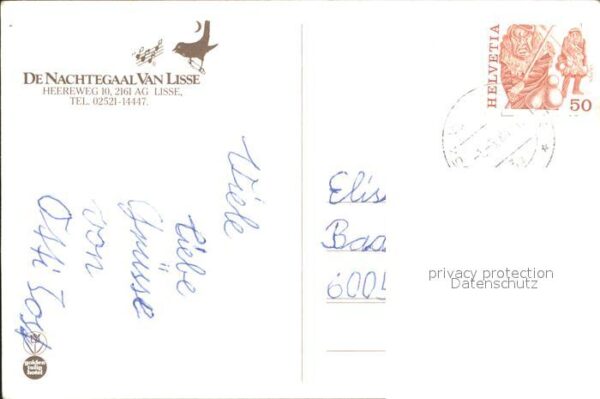 DE NACHTEGAAL VAN LISSE
HEEREWEG 10, 2161 AG LISSE,
TEL. 02521-14447.
Viele
liebe
Grüsse
von
Otti
golden
tulip
hotel
HELVETIA
50
Elis
Baa
6005
privacy protection
Datenschutz